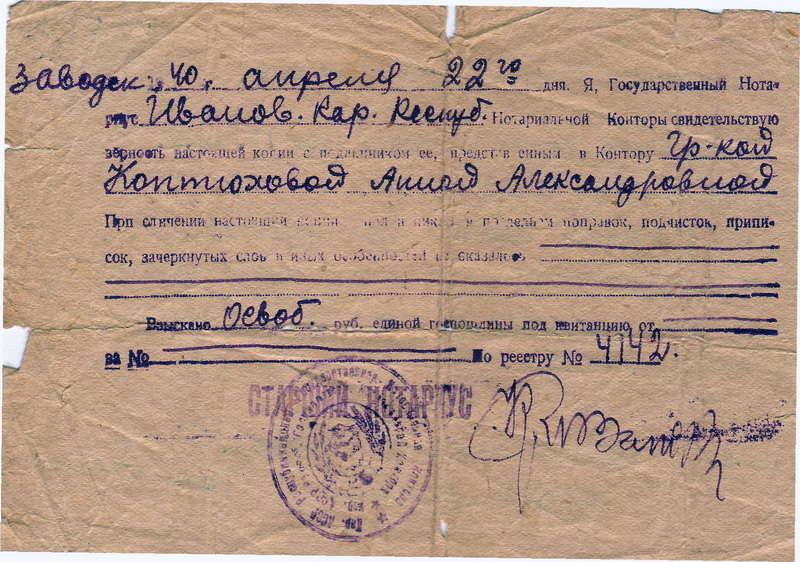 апреля 22го дня. Я, Государственный Нота-
риус Иванов. Кар. Респуб. Нотариальной Конторы свидетельствую
верность настоящей копии с подлинником ее, представленным в Контору гр-кой
Коптюховой Анной Александровной
При сличении настоящей копии с подлинником в последнем поправок, подчисток, припи-
сок, зачеркнутых слов и иных особенностей не оказалось
Взыскано Освоб. руб. единой госпошлины под квитанцию от
за № По реестру № 4142.
СТАРШИЙ НОТАРИУС